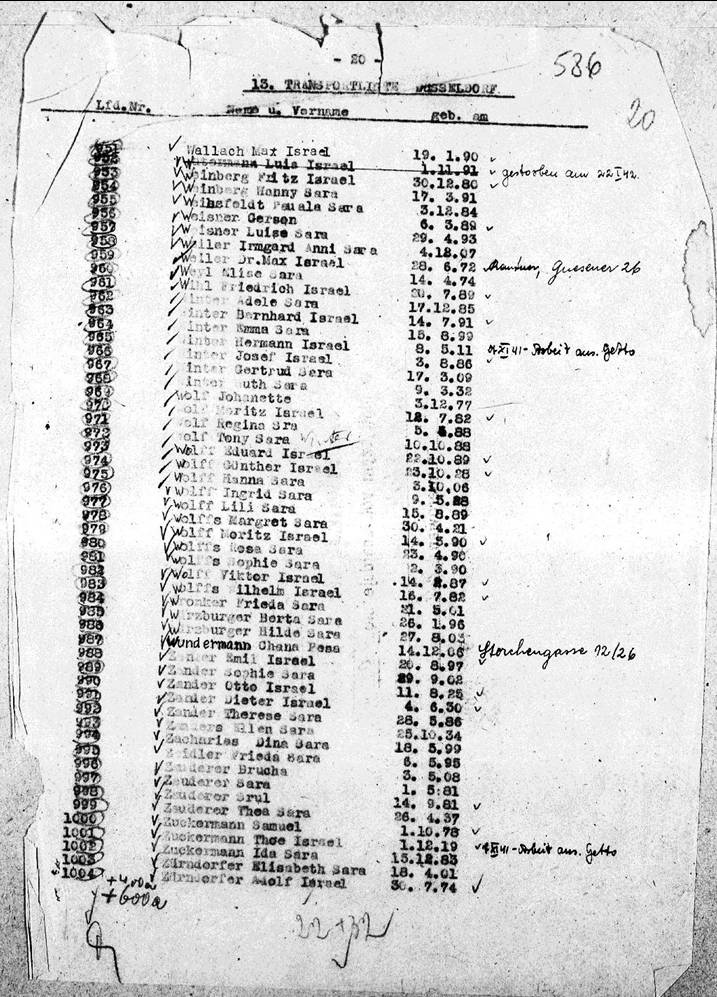 - 20 -
586
13. TRANSPORTLISTE DÜSSELDORF
20
Lfd.Nr. Name u. Vorname geb. am
951 Wallach Max Israel 19. 1.90
952 Luis Israel 1.11.91 gestorben am 22 I 42.
953 Weinberg Fritz Israel 30.12.80
954 Weinberg Hanny Sara 17. 3.91
955 Weihsfeldt Pauala Sara 3.12.84
956 Weisner Gerson 6. 3.89
957 Weisner Luise Sara 29. 4.93
958 Weller Irmgard Anni Sara 4.12.07
959 Weiler Dr.Max Israel 28. 6.72 Gnesener 26
960 Weyl Elise Sara 14. 4.74
961 Wihl Friedrich Israel 20. 7.89
962 Winter Adele Sara 17.12.85
963 Winter Bernhard Israel 14. 7.91
964 Winter Emma Sara 15. 8.99
965 Winter Hermann Israel 8. 5.11 XI 41-Arbeit aus. Getto
966 Winter Josef Israel 3. 8.86
967 Winter Gertrud Sara 17. 3.09
968 Winter Ruth Sara 9. 3.32
969 Wolf Johanette 3.12.77
970 Wolf Moritz Israel 12. 7.82
971 Wolf Regina Sra 5. 5.88
972 Wolf Tony Sara 10.10.88
973 Wolff Eduard Israel 22.10.89
974 Wolff Günther Israel 23.10.28
975 Wolff Hanna Sara 3.10.06
976 Wolff Ingrid Sara 9. 5.28
977 Wolff Lili Sara 15. 8.89
978 Wolffs Margret Sara 30. 4.21
979 Wolff Moritz Israel 14. 5.90
980 Wolffs Rosa Sara 23. 4.90
981 Wolffs Sophie Sara 2. 3.90
982 Wolff Viktor Israel 14. 2.87
983 Wolffs Wilhelm Israel 16. 7.82
984 Wronker Frieda Sara 21. 5.01
985 Würzburger Berta Sara 26. 1.96
986 Würzburger Hilde Sara 27. 8.03
987 Wundermann Chana Pesa 14.12.06 Storchengasse 12/26
988 Zander Emil Israel 20. 8.97
989 Zander Sophie Sara 29. 9.02
990 Zander Otto Israel 11. 8.25
991 Zander Dieter Israel 4. 6.30
992 Zander Therese Sara 28. 5.86
993 Zanders Ellen Sara 25.10.34
994 Zacharias Dina Sara 18. 5.99
995 Zeidler Frieda Sara 6. 5.95
996 Zauderer Brucha 3. 5.08
997 Zauderer Sara 1. 5.81
998 Zauderer Srul 14. 9.81
999 Zauderer Thea Sara 26. 4.37
1000 Zuckermann Samuel 1.10.78
1001 Zuckermann Thoe Israel 1.12.19 XII 41-Arbeit aus. Getto
1002 Zuckermann Ida Sara 15.12.83
1003 Zürndorfer Elisabeth Sara 18. 4.01
1004 Zürndorfer Adolf Israel 30. 7.74
+400a
+600a
22+32